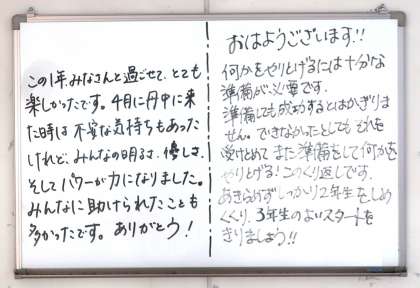 この1年、みなさんと過ごせて、とても
楽しかったです。4月に丹中に来
た時は不安な気持ちもあった
けれど、みんなの明るさ、優しさ、
そしてパワーが力になりました。
みんなに助けられたことも
多かったです。ありがとう！
おはようございます!!
何かをやりとげるには十分な
準備が必要です。
準備しても成功するとはかぎりま
せん。できなかったとしてもそれを
受けとめて また準備をして何かを
やりとげる！このくり返しです。
あきらめずしっかり2年生をしめ
くくり、3年生のよいスタートを
きりましょう!!